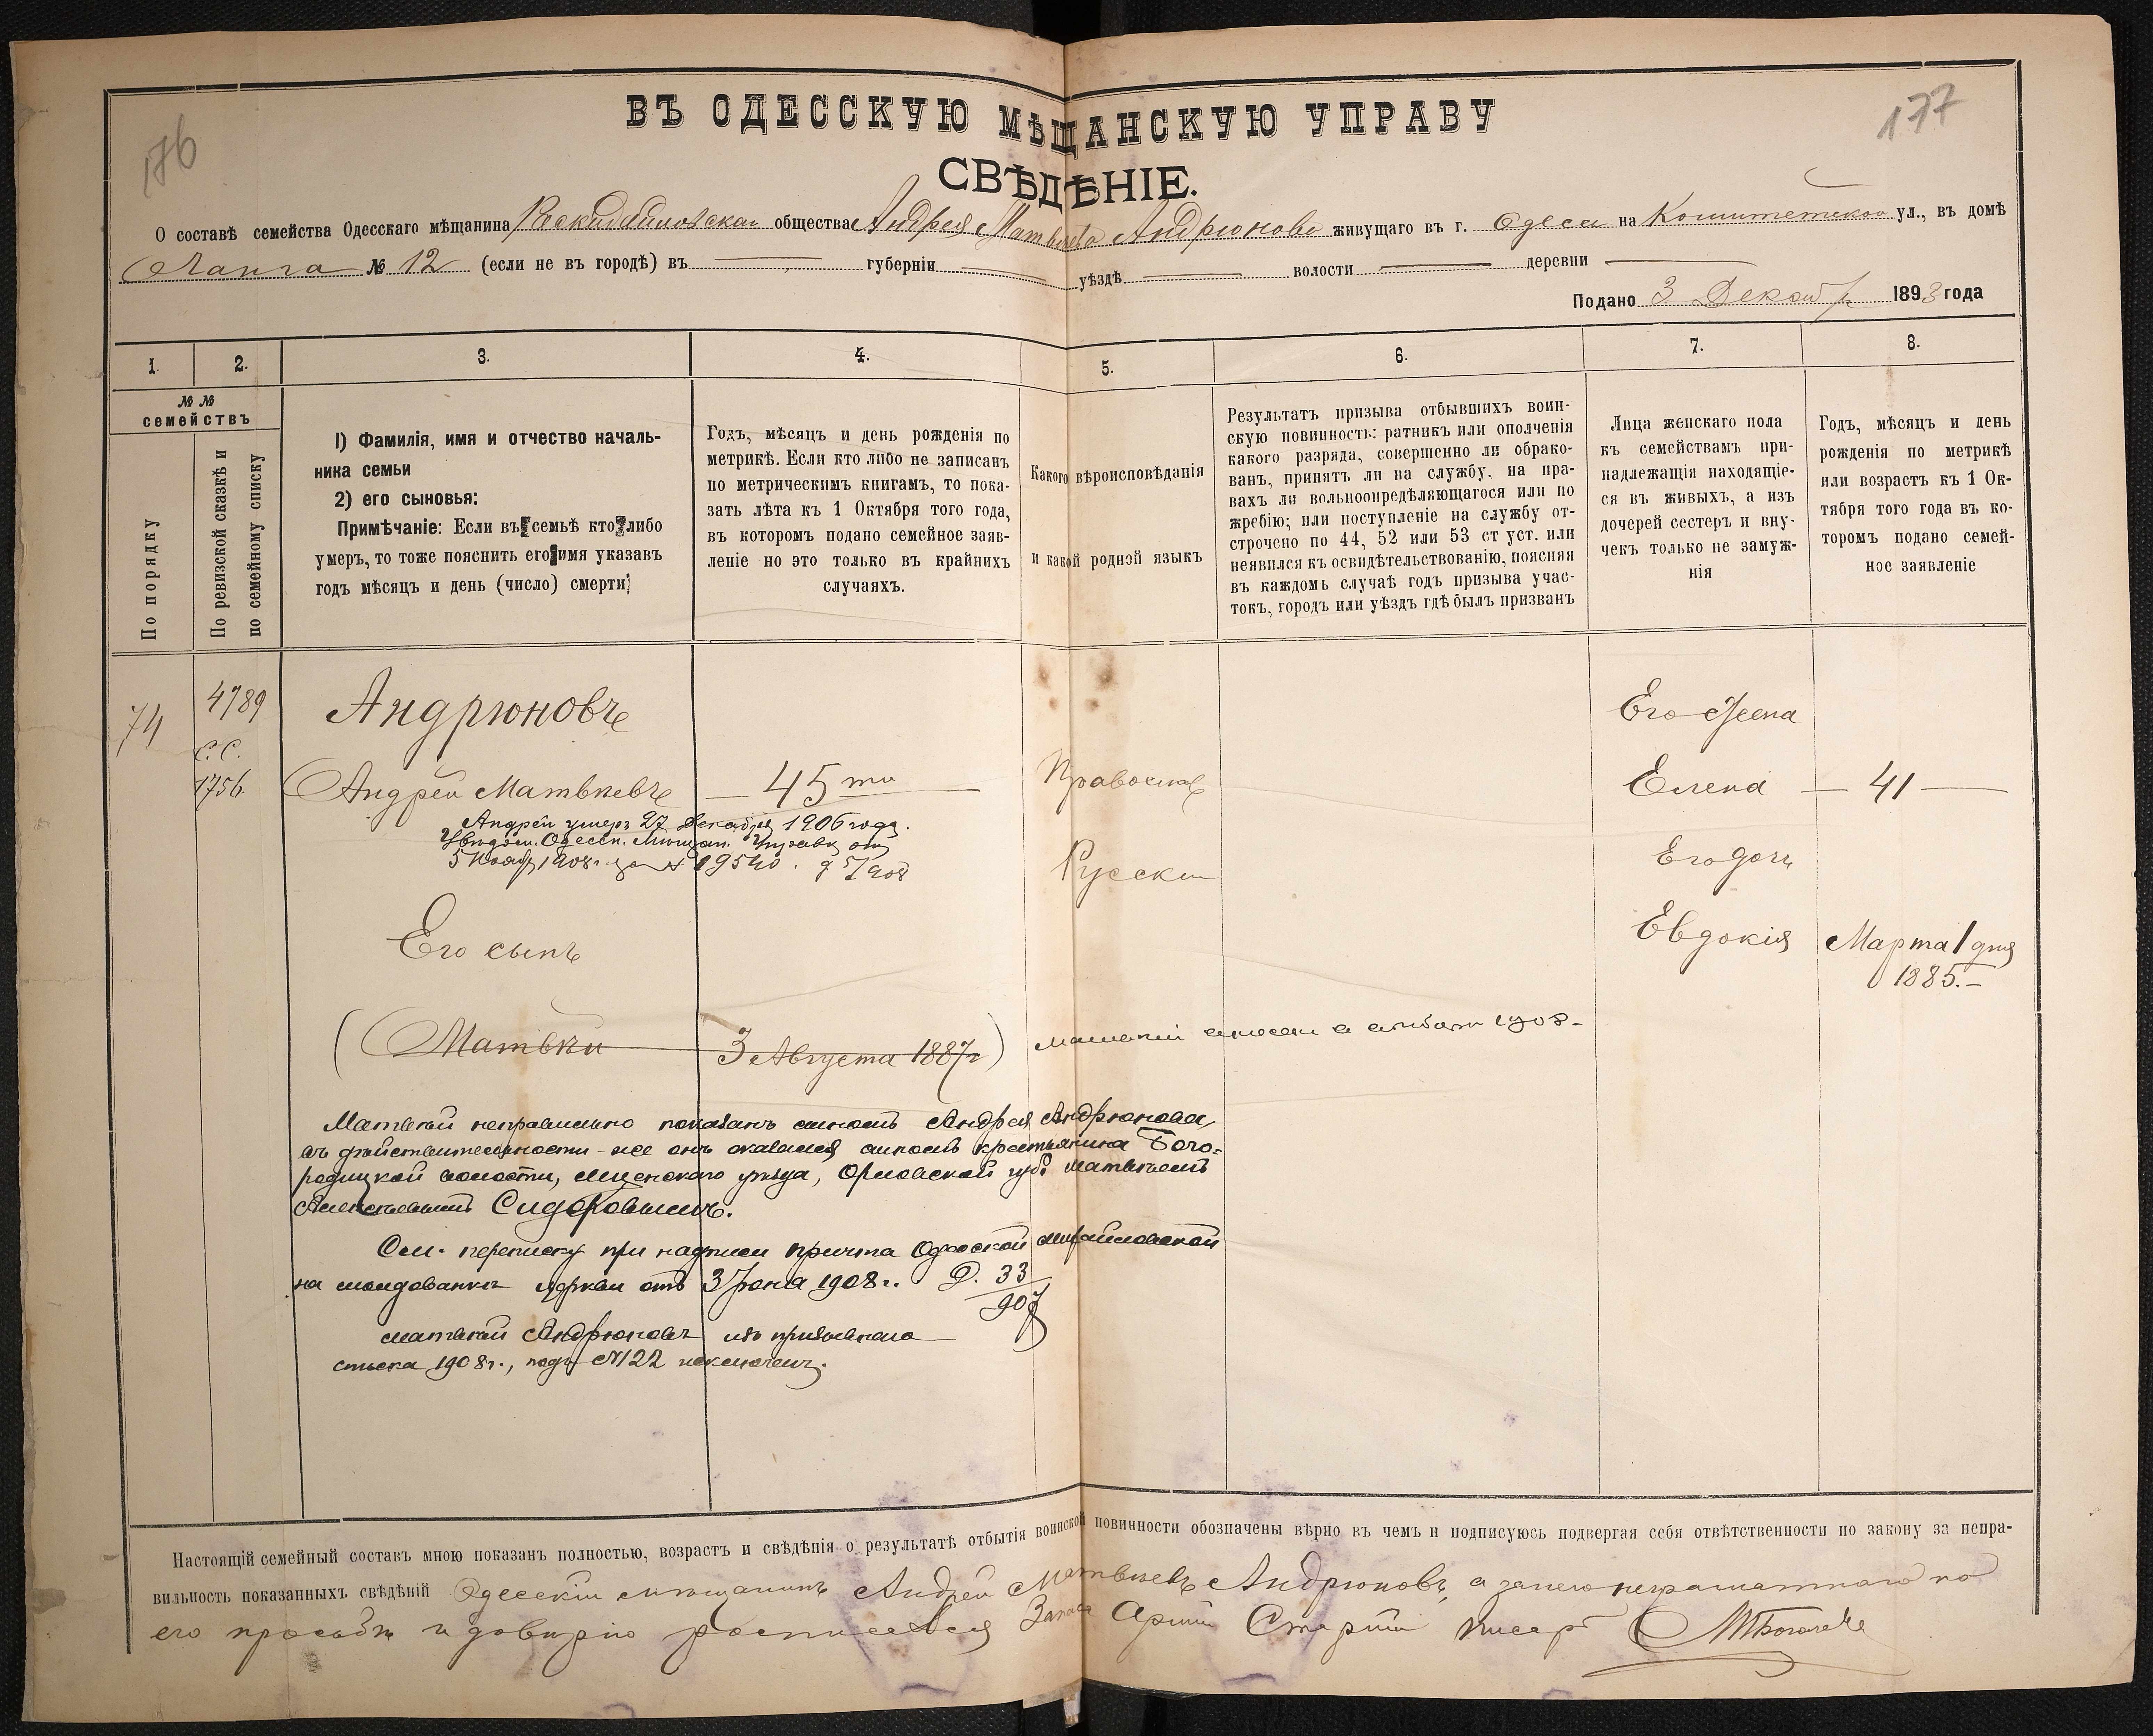 176
177
ВЪ ОДЕССКУЮ МѢЩАНСКУЮ УПРАВУ
СВѢДѢНІЕ.
О составѣ семейства Одесскаго мѣщанина общества Андрея Матвѣева Андрюнова живущаго въ г. Одеси на Комитетской ул., въ домѣ
Ланга № 12 (если не въ городѣ) въ губерніи уѣздѣ волости деревни
Подано 3 Декаб 1893 года
1. 2. 3. 4. 5. 6. 7. 8.
№ №
семействъ
По порядку
По ревизской сказкѣ и
по семейному списку
1) Фамилія, имя и отчество началь-
ника семьи
2) его сыновья:
Примѣчаніе: Если въ семьѣ кто либо
умеръ, то тоже пояснить его имя указавъ
годъ мѣсяцъ и день (число) смерти
Годъ, мѣсяцъ и день рожденія по
метрикѣ. Если кто либо не записанъ
по метрическимъ книгамъ, то пока-
зать лѣта къ 1 Октября того года,
въ которомъ подано семейное заяв-
леніе но это только въ крайнихъ
случаяхъ.
Какого вѣроисповѣданія
и какой родной языкъ
Результатъ призыва отбывшихъ воин-
скую повинность: ратникъ или ополченія
какого разряда, совершенно ли обрако-
ванъ, принятъ ли на службу, на пра-
вахъ ли вольноопредѣляющагося или по
жребію; или поступленіе на службу от-
строчено по 44, 52 или 53 ст уст. или
неявился къ освидѣтельствованію, поясняя
въ каждомъ случаѣ годъ призыва учас-
токъ, городъ или уѣздъ гдѣ былъ призванъ
Лица женскаго пола
къ семействамъ при-
надлежащія находящіе-
ся въ живыхъ, а изъ
дочерей сестеръ и вну-
чекъ только не замуж-
нія
Годъ, мѣсяцъ и день
рожденія по метрикѣ
или возрастъ къ 1 Ок-
тября того года въ ко-
торомъ подано семей-
ное заявленіе
74
4789
С.С.
1756.
Андрюновъ
Его Жена
Андрей Матвѣевъ — 45 ти — Православ Елена — 41 —
Андрей умеръ 27 Декабря 1906 года.
Увѣдом. Одесск. Мѣщан. Управы отъ
5 Нояб 1908 г. за № 19540.
Русски
Его дочь
Его сынъ
Евдокія Марта 1 дня
1885.-
(Матвѣй 3 Августа 1887 г)
Матвѣй неправильно показанъ сыномъ Андрея Андрюнова,
въ дѣйствительности-же онъ оказался сыномъ крестьянина Бого-
родицкой волости, Мценскаго уѣзда, Орловской губ. Матвѣемъ
Алексѣевымъ Сидоровымъ.
См. переписку при надписи причта Одесской Михайловской
на молдаванкѣ церкви отъ 3 Іюня 1908 г. Д. 33
907
Матвѣй Андрюновъ изъ призывнаго
списка 1908 г., подъ №122 исключенъ.
Настоящій семейный составъ мною показанъ полностью, возрастъ и свѣдѣнія о результатѣ отбытія воинской повинности обозначены вѣрно въ чемъ и подписуюсь подвергая себя отвѣтственности по закону за непра-
вильность показанныхъ свѣдѣній Одесскій мѣщанинъ Андрей Матвѣевъ Андрюновъ, а занего неграматнаго по
его просьбѣ и довѣрію росписался Запаса Арміи Старшій Писарь